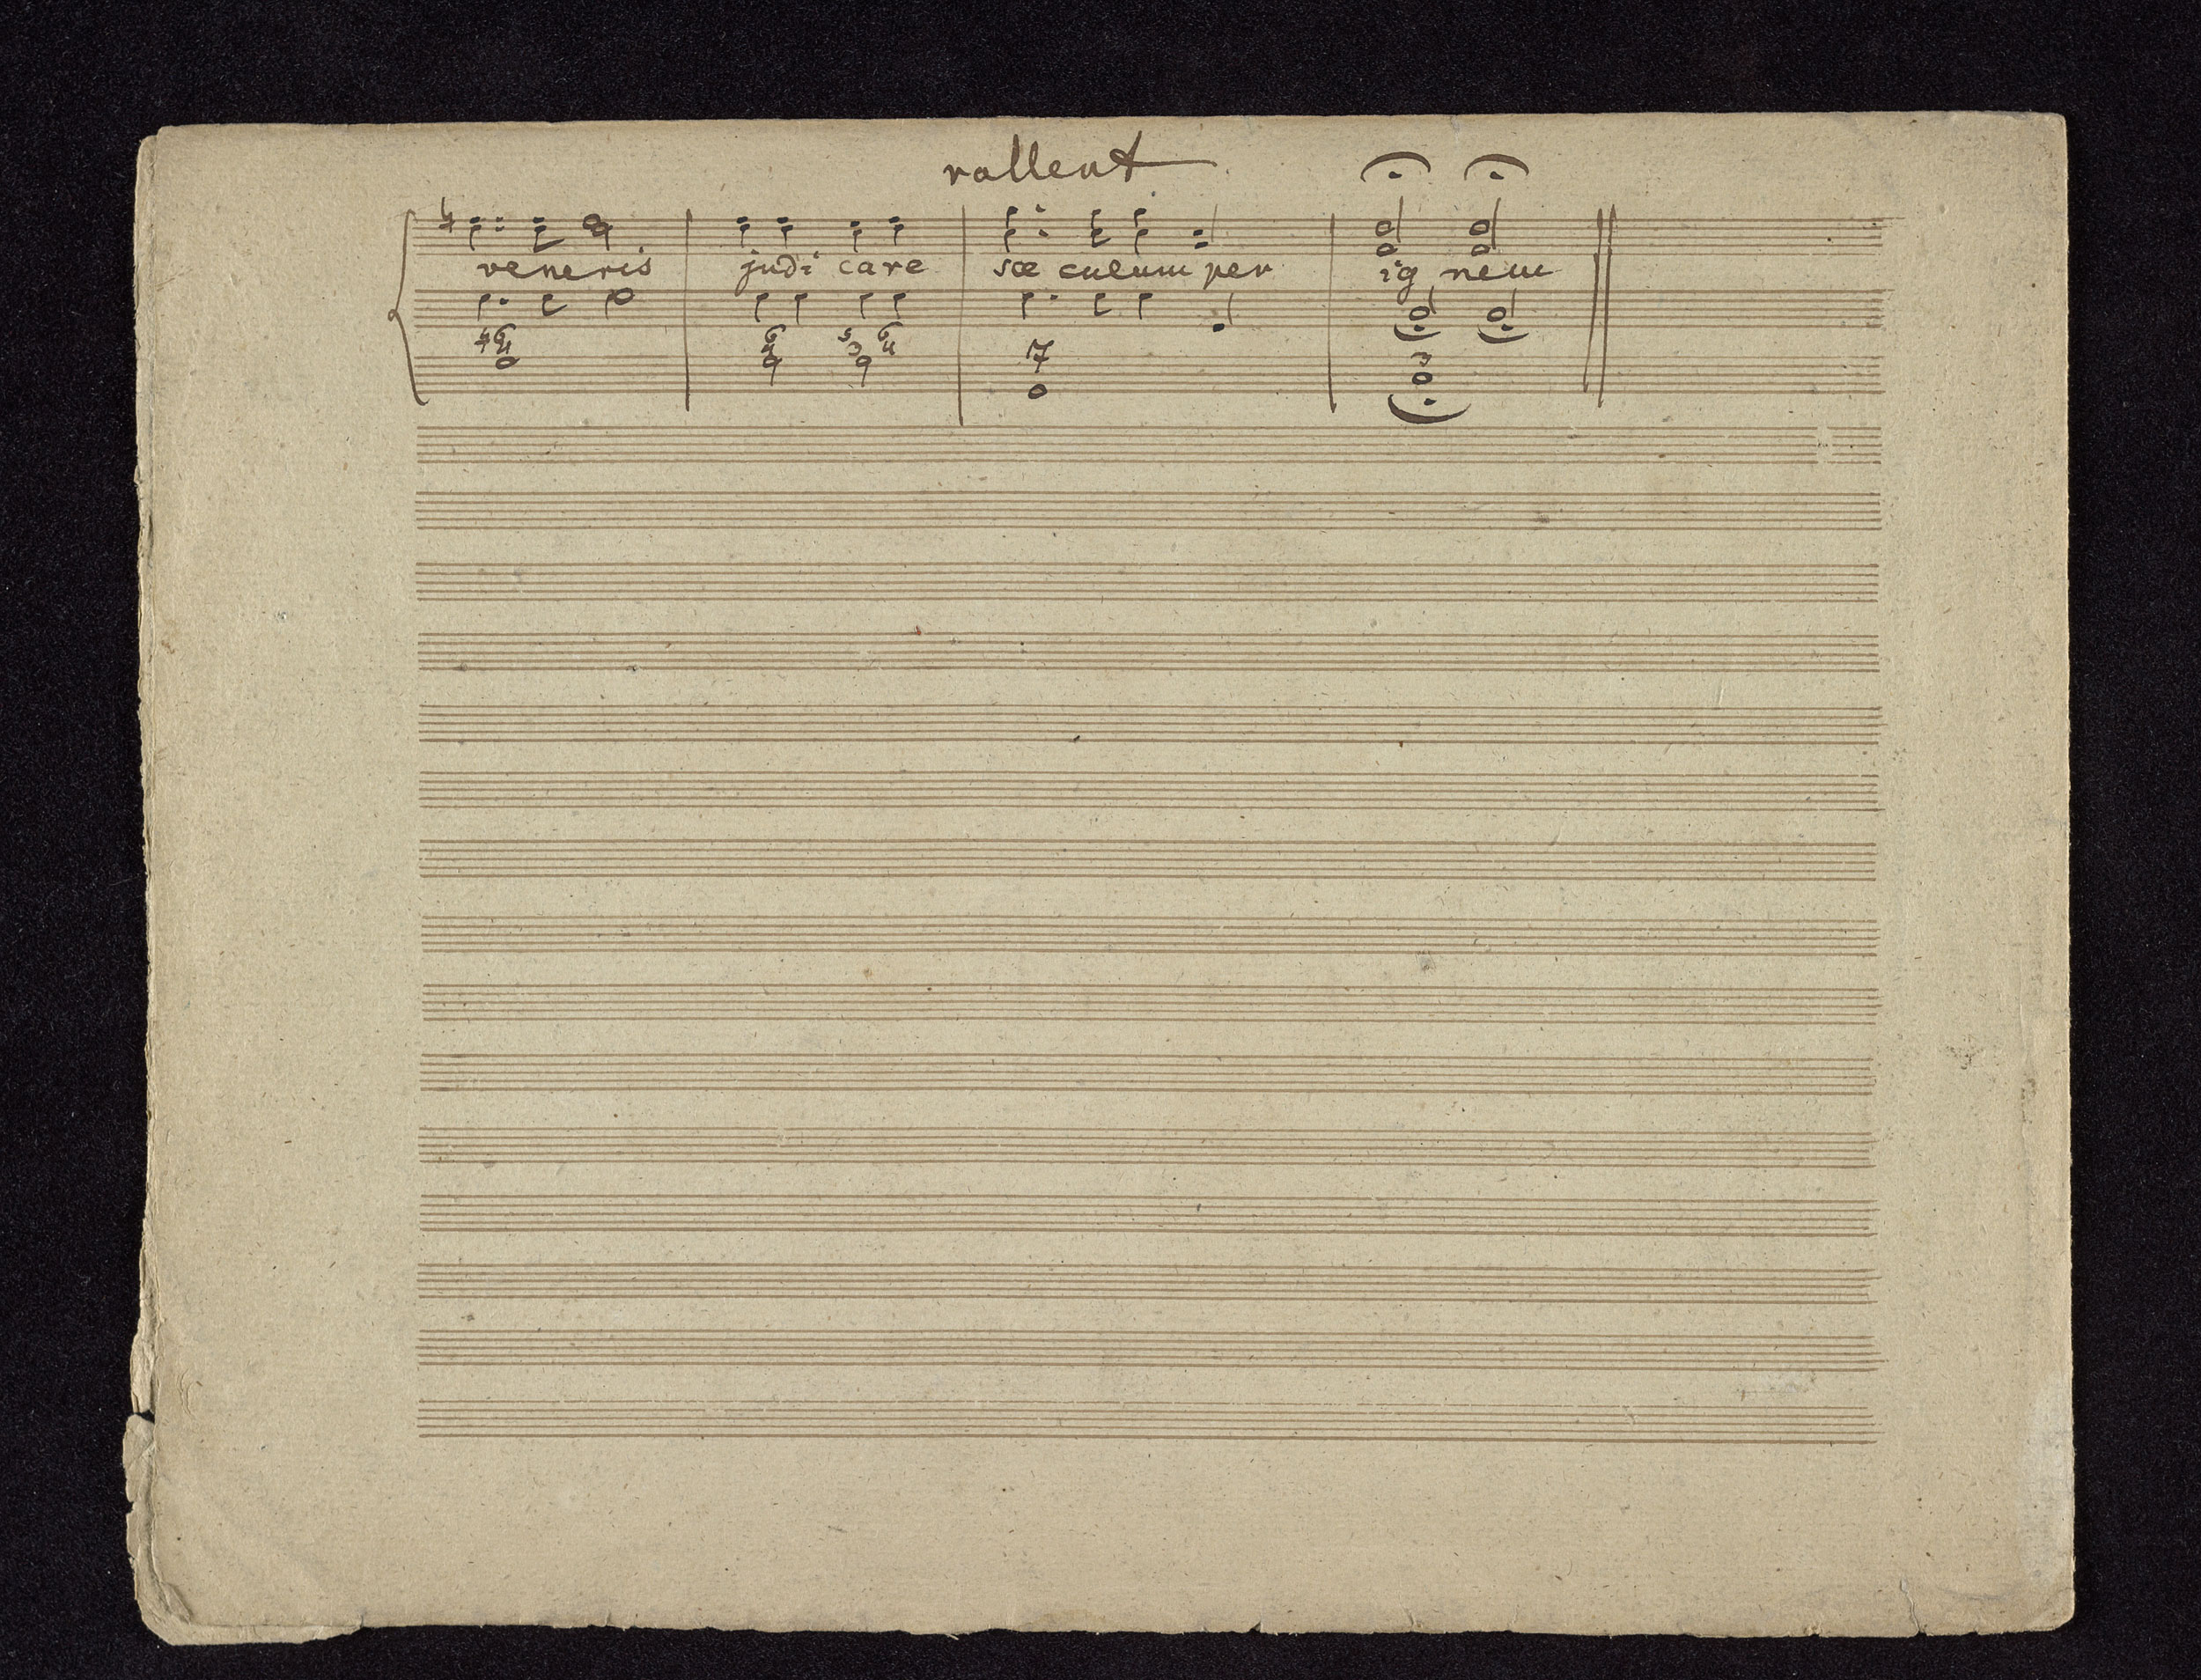 rallent
veneris judi care sæ culum per ig nem
6 6 5 6
4 4 3 4 7 3